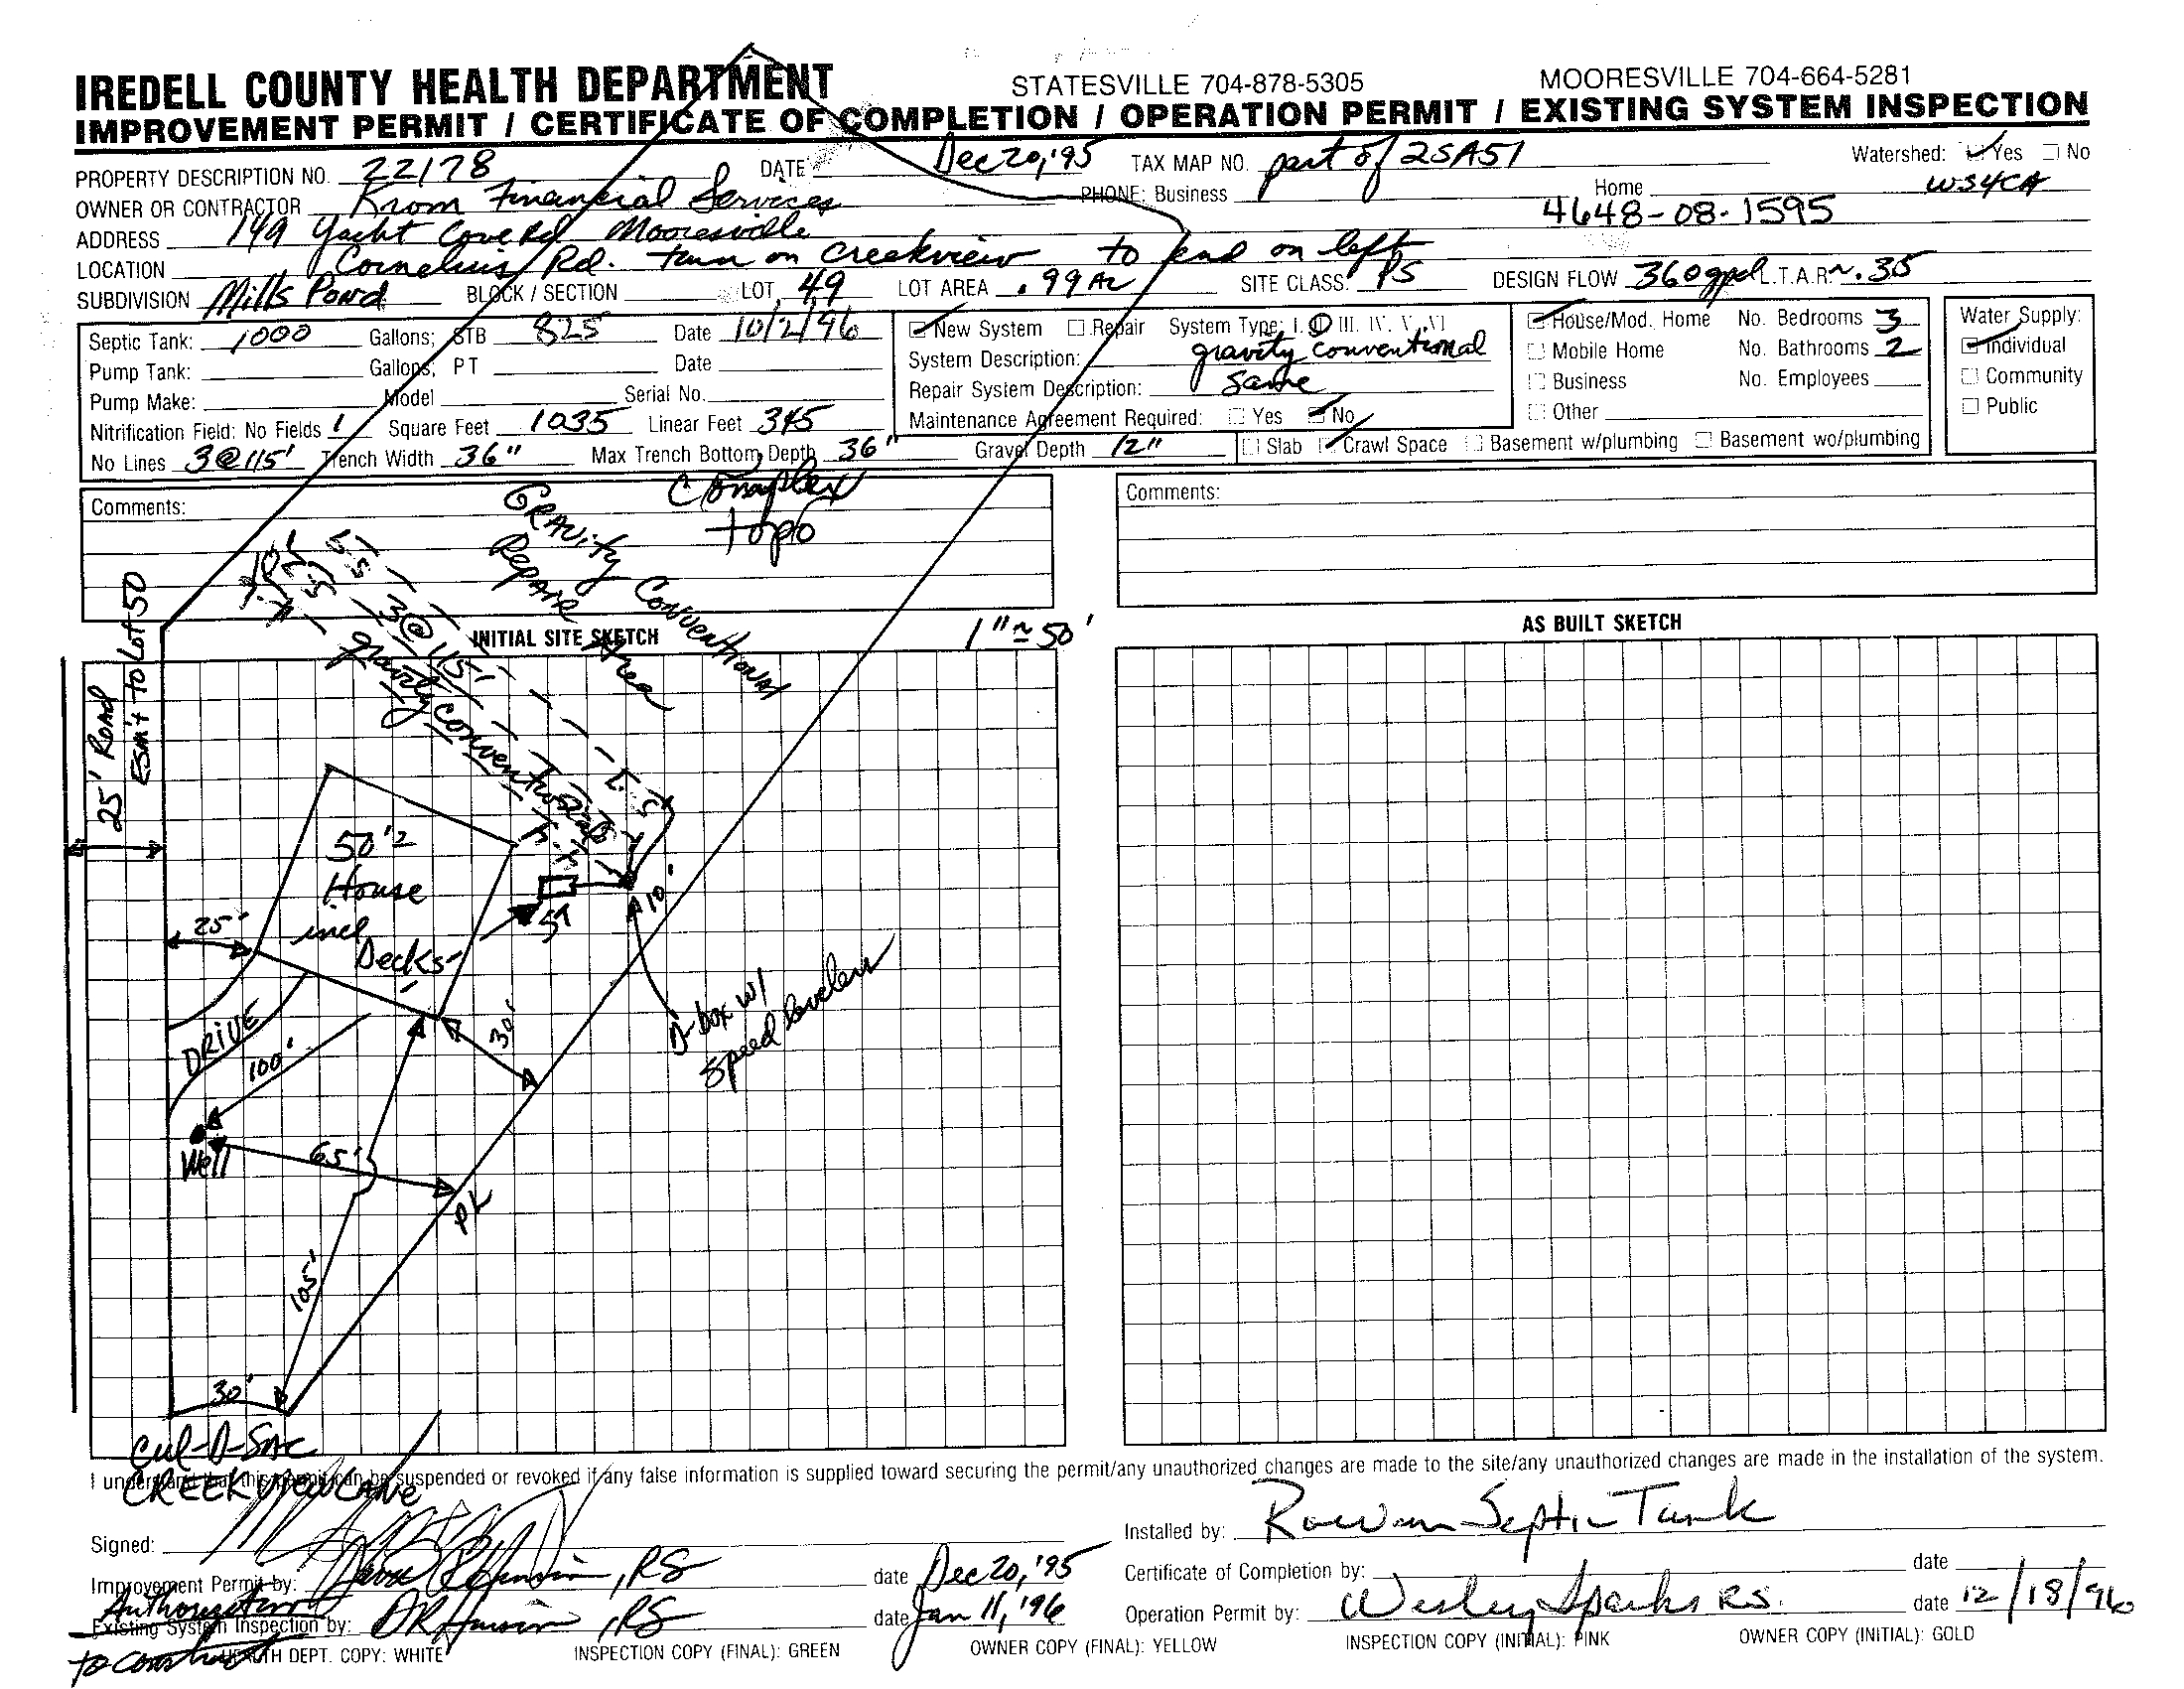 IREDELL COUNTY HEALTH DEPARTMENT STATESVILLE 704-878-5305 MOORESVILLE 704-664-5281
IMPROVEMENT PERMIT / CERTIFICATE OF COMPLETION / OPERATION PERMIT / EXISTING SYSTEM INSPECTION
PROPERTY DESCRIPTION NO. 22178 DATE Dec 20, '95 TAX MAP NO. part of 2SA51 Watershed: Yes No
WS4CA
OWNER OR CONTRACTOR Krom Financial Services PHONE: Business Home
4648-08-1595
ADDRESS 149 Yacht Cove Rd Mooresville
LOCATION Cornelius Rd. turn on Creekview to end on left
SUBDIVISION Mills Pond BLOCK / SECTION LOT 49 LOT AREA .99 Ac SITE CLASS: PS DESIGN FLOW 360 gpd L.T.A.R. ~.35
Septic Tank: 1000 Gallons; STB 825 Date 10/2/96
Pump Tank: Gallons; PT Date
Pump Make: Model Serial No.
Nitrification Field: No Fields 1 Square Feet 1035 Linear Feet 345
No Lines 3@115' Trench Width 36" Max Trench Bottom Depth 36" Gravel Depth 12"
New System Repair System Type: I. II. III. IV. V. VI
System Description: gravity conventional
Repair System Description: Same
Maintenance Agreement Required: Yes No
House/Mod. Home No. Bedrooms 3
Mobile Home No. Bathrooms 2
Business No. Employees
Other
Slab Crawl Space Basement w/plumbing Basement wo/plumbing
Water Supply:
Individual
Community
Public
Comments:
Complex
topo
Comments:
Gravity Conventional
Repair Area
INITIAL SITE SKETCH 1" ≈ 50'
AS BUILT SKETCH
25' ROAD
ESM't to Lot 50
3@115'
gravity conventional
50'²
House
incl
Decks
ST
10'
25'
DRIVE
100'
30'
D-box w/
speed levelers
Well
65'
PL
105'
30'
Cul-D-Sac
CREEKVIEW LANE
I understand that this permit can be suspended or revoked if any false information is supplied toward securing the permit/any unauthorized changes are made to the site/any unauthorized changes are made in the installation of the system.
Signed:
Installed by: Rowan Septic Tank
Improvement Permit by: RS date Dec 20, '95
Certificate of Completion by: date
Authorization
to construct
Existing System Inspection by: RS date Jan 11, '96
Operation Permit by: Wesley Sparks RS. date 12/18/96
HEALTH DEPT. COPY: WHITE INSPECTION COPY (FINAL): GREEN OWNER COPY (FINAL): YELLOW INSPECTION COPY (INITIAL): PINK OWNER COPY (INITIAL): GOLD